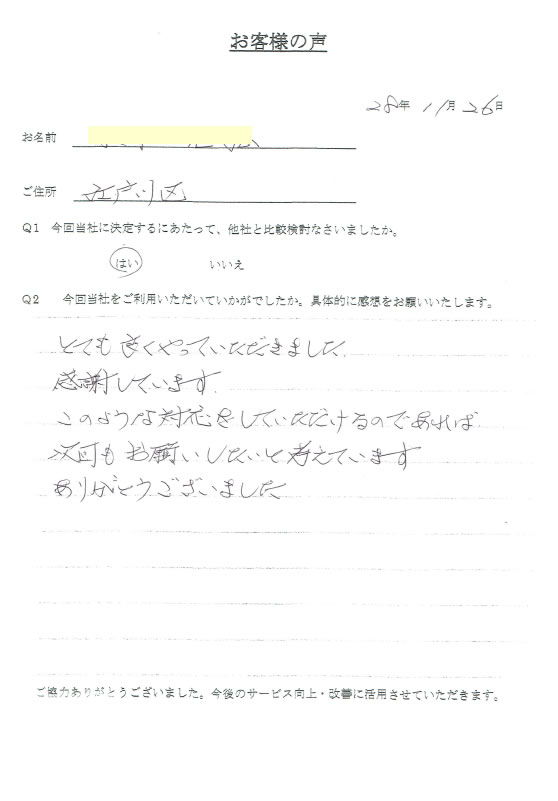 お客様の声
28年 11月 26日
お名前
ご住所 江戸川区
Q1 今回当社に決定するにあたって、他社と比較検討なさいましたか。
はい いいえ
Q2 今回当社をご利用いただいていかがでしたか。具体的に感想をお願いいたします。
とても良くやっていただきました
感謝しています.
このような対応をしていただけるのであれば
次回もお願いしたいと考えています
ありがとうございました
ご協力ありがとうございました。今後のサービス向上・改善に活用させていただきます。